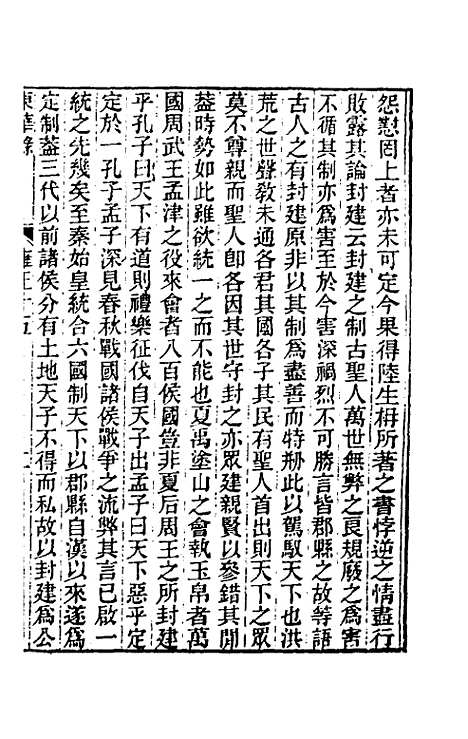 怨懟罔上者亦未可定今果得陸生枬所著之書悖逆之情盡行
敗露其論封建云封建之制古聖人萬世無弊之良規廢之爲害
不循其制亦爲害至於今害深禍烈不可勝言皆郡縣之故等語
古人之有封建原非以其制爲盡善而特刱此以駕馭天下也洪
荒之世聲敎未通各君其國各子其民有聖人首出則天下之眾
莫不尊親而聖人卽各因其世守封之亦眾建親賢以參錯其閒
葢時勢如此雖欲統一之而不能也夏禹塗山之會執玉帛者萬
國周武王孟津之役來會者八百侯國豈非夏后周王之所封建
乎孔子曰天下有道則禮樂征伐自天子出孟子曰天下惡乎定
定於一孔子孟子深見春秋戰國諸侯戰爭之流弊其言已啟一
統之先幾矣至秦始皇統合六國制天下以郡縣自漢以來遂爲
定制葢三代以前諸侯分有土地天子不得而私故以封建爲公
東華錄 雍正十五